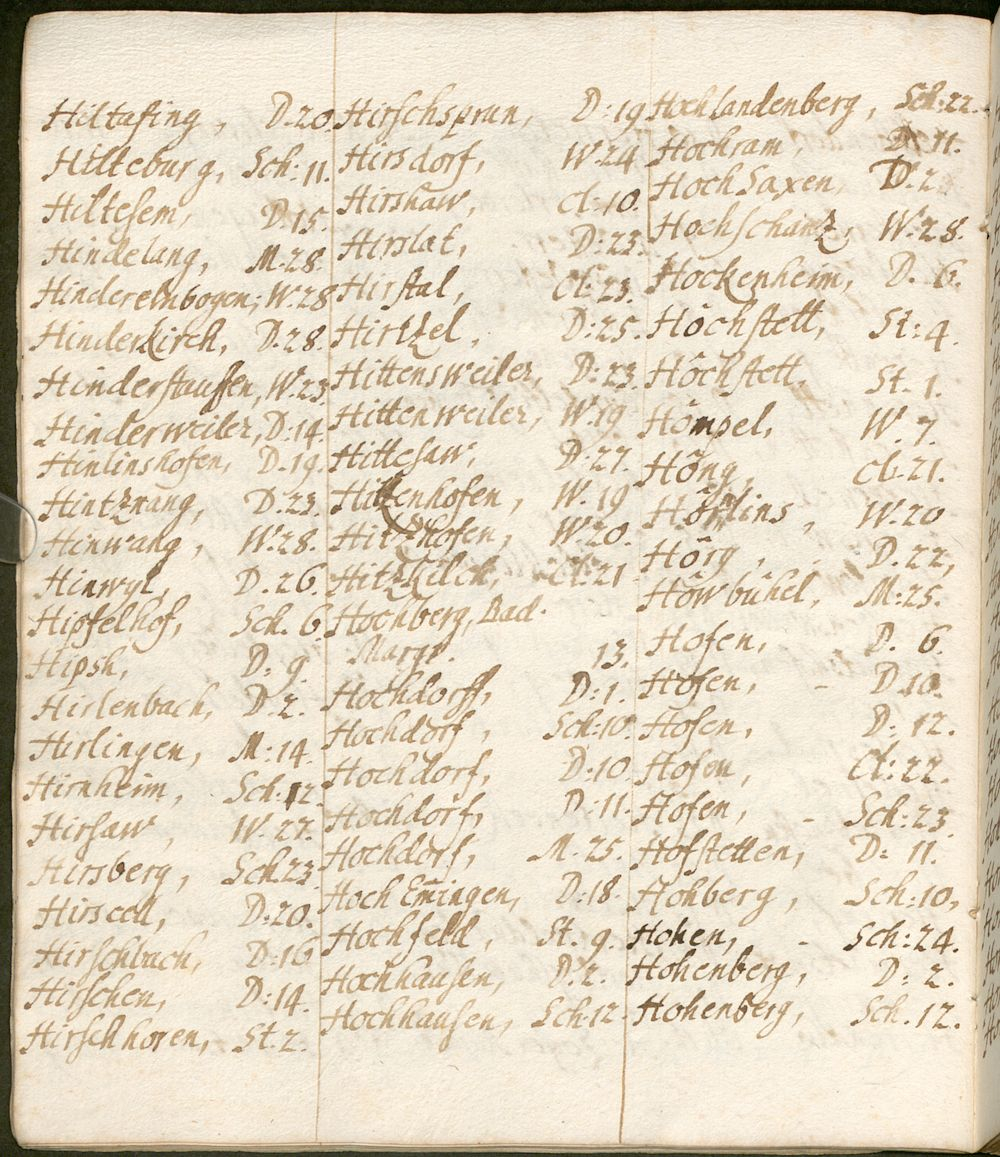 Hiltafing, D. 20.
Hilteburg, Sch: 11.
Hiltesem, D. 15.
Hindelang, M: 28.
Hinderelnbogen, W. 28
Hinderkirch, D. 28.
Hinderstauffen, W. 23
Hinderweiler, D: 14.
Hinlinshofen, D. 19.
Hintznang, D. 23.
Hinwang, W. 28.
Hinwyl, D. 26.
Hipfelhof, Sch. 6.
Hipsh, D. 9.
Hirlenbach, D. 2.
Hirlingen, M: 14.
Hirnheim, Sch: 12.
Hirsaw, W. 27.
Hirsberg, Sch. 23.
Hirscell, D. 20.
Hirschbach, D: 16
Hirschen, D: 14.
Hirschhoren, St. 2.
Hirschsprun, D: 19
Hirsdorf, W. 24
Hirshaw, Cl: 10.
Hirslat, D: 23.
Hirstal, Cl: 23.
Hirtzel, D: 25.
Hittensweiler, D: 23.
Hittenweiler, W. 19
Hittesaw, D. 27.
Hittenhofen, W. 19
Hitzhofen, W. 20.
Hitzkilch, Cl: 21
Hochberg, Bad.
Margr. 13.
Hochdorff, D: 1.
Hochdorf, Sch: 10.
Hochdorf, D: 10.
Hochdorf, D: 11.
Hochdorf, M. 25.
Hoch Emingen, D: 18.
Hochfeld, St. 9.
Hochhausen, D. 2.
Hochhausen, Sch. 12.
Hochlandenberg, Sch: 22.
Hochram, D. 11.
Hoch Saxen, D. 2.
Hochschantz, W. 28.
Hockenheim, D. 6.
Höchstett, St: 4.
Höchstett, St. 1.
Hömpel, W. 7.
Höng, Cl. 21.
Hörlins, W. 20
Hörg, D. 22,
Höwbühel, M: 25.
Hofen, D. 6.
Hofen, - D. 10.
Hofen, D: 12.
Hofen, Cl: 22.
Hofen, - Sch: 23.
Hofstetten, D: 11.
Hohberg, Sch: 10,
Hohen, - Sch: 24.
Hohenberg, D: 2.
Hohenberg, Sch. 12.